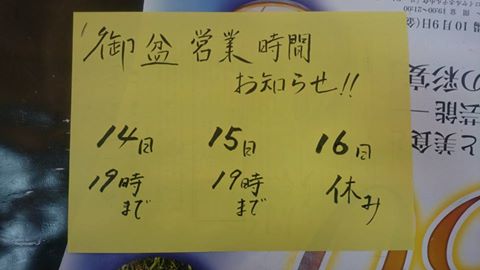 御盆営業時間
お知らせ!!
14日 15日 16日
19時まで 19時まで 休み
10月9日(金)
の彩宴
芸能
と美食